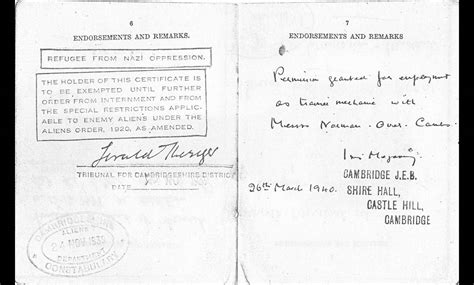 6
ENDORSEMENTS AND REMARKS
REFUGEE FROM NAZI OPPRESSION.
THE HOLDER OF THIS CERTIFICATE IS
TO BE EXEMPTED UNTIL FURTHER
ORDER FROM INTERNMENT AND FROM
THE SPECIAL RESTRICTIONS APPLIC-
ABLE TO ENEMY ALIENS UNDER THE
ALIENS ORDER, 1920, AS AMENDED.
TRIBUNAL FOR CAMBRIDGESHIRE DISTRICT
DATE
ALIENS
24 NOV 1939
DEPARTMENT
CONSTABULARY
7
ENDORSEMENTS AND REMARKS
Permission granted for employment
as trainee mechanic with
Messrs Norman
CAMBRIDGE J.E.B.
26th March 1940. SHIRE HALL,
CASTLE HILL,
CAMBRIDGE